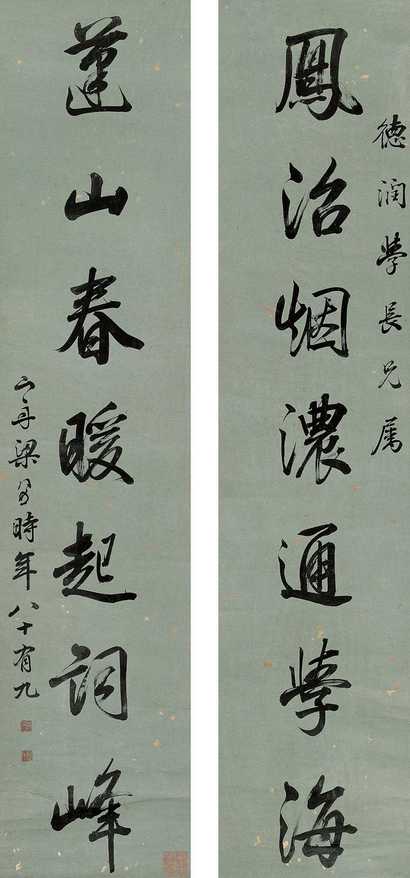 德潤學長兄属
鳳沼烟濃通學海
蓬山春暖起詞峰
山舟梁同書時年八十有九